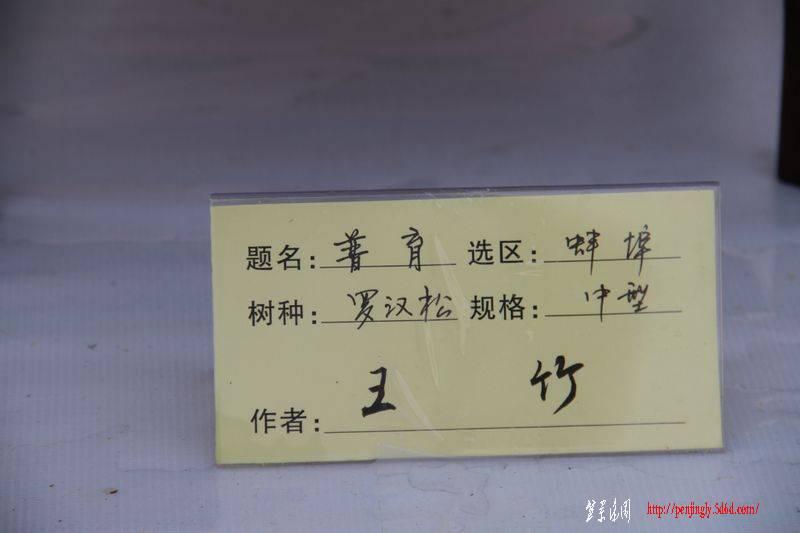 题名：普育 选区：蚌埠
树种：罗汉松 规格：中型
作者：王竹
http://penjingly.5d6d.com/